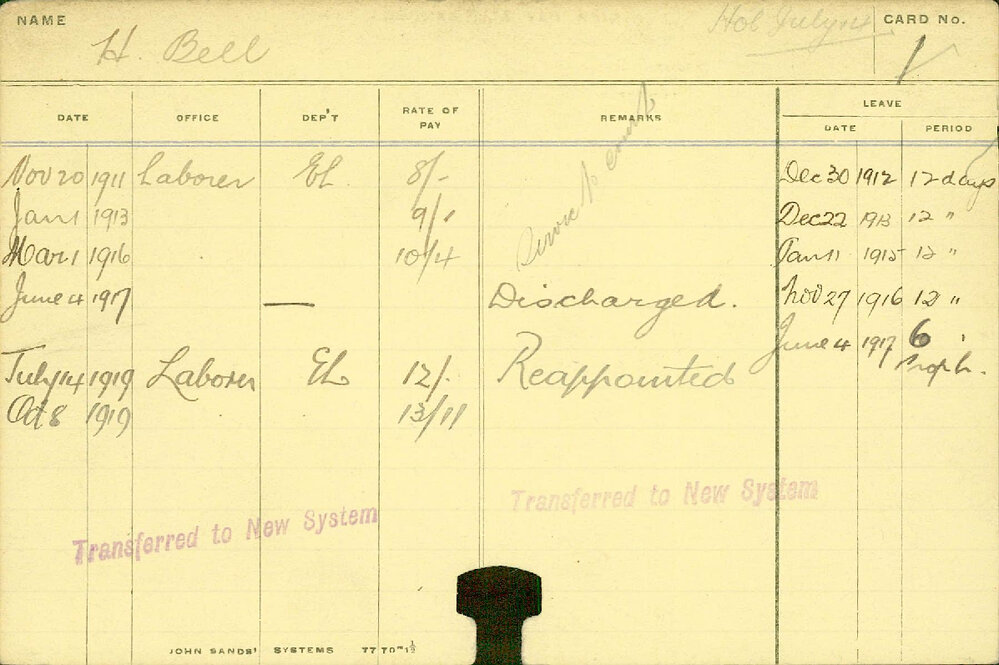 NAME H. Bell CARD No. 1
DATE OFFICE DEP'T RATE OF PAY REMARKS LEAVE
DATE PERIOD
Nov 20 1911 Laborer EL 8/- Dec 30 1912 12 days
Jan 1 1913 9/1 Dec 22 1913 12 "
Mar 1 1916 10/4 Jan 11 1915 12 "
June 4 1917 — Discharged. Nov 27 1916 12 "
June 4 1917 6 "
July 14 1919 Laborer EL 12/- Reappointed
Oct 8 1919 13/11
Transferred to New System
Transferred to New System
JOHN SANDS' SYSTEMS